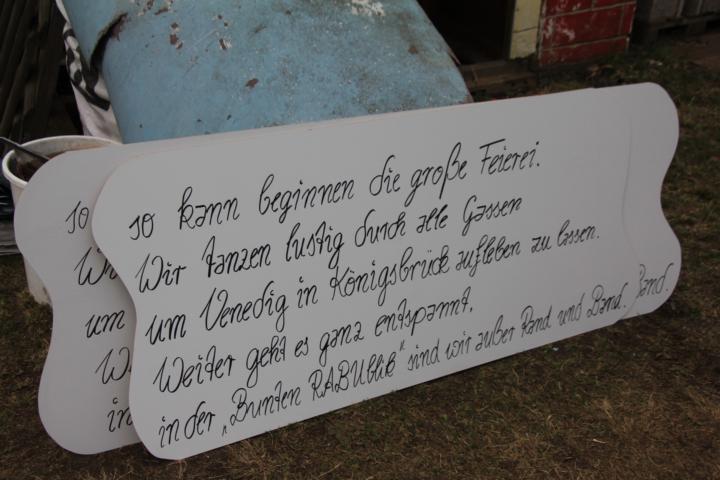 so kann beginnen die große Feierei.
Wir tanzen lustig durch alle Gassen
um Venedig in Königsbrück aufleben zu lassen.
Weiter geht es ganz entspannt,
in der „Bunten RABUblik" sind wir außer Rand und Band.
so
Wir
um
W
in
Band.